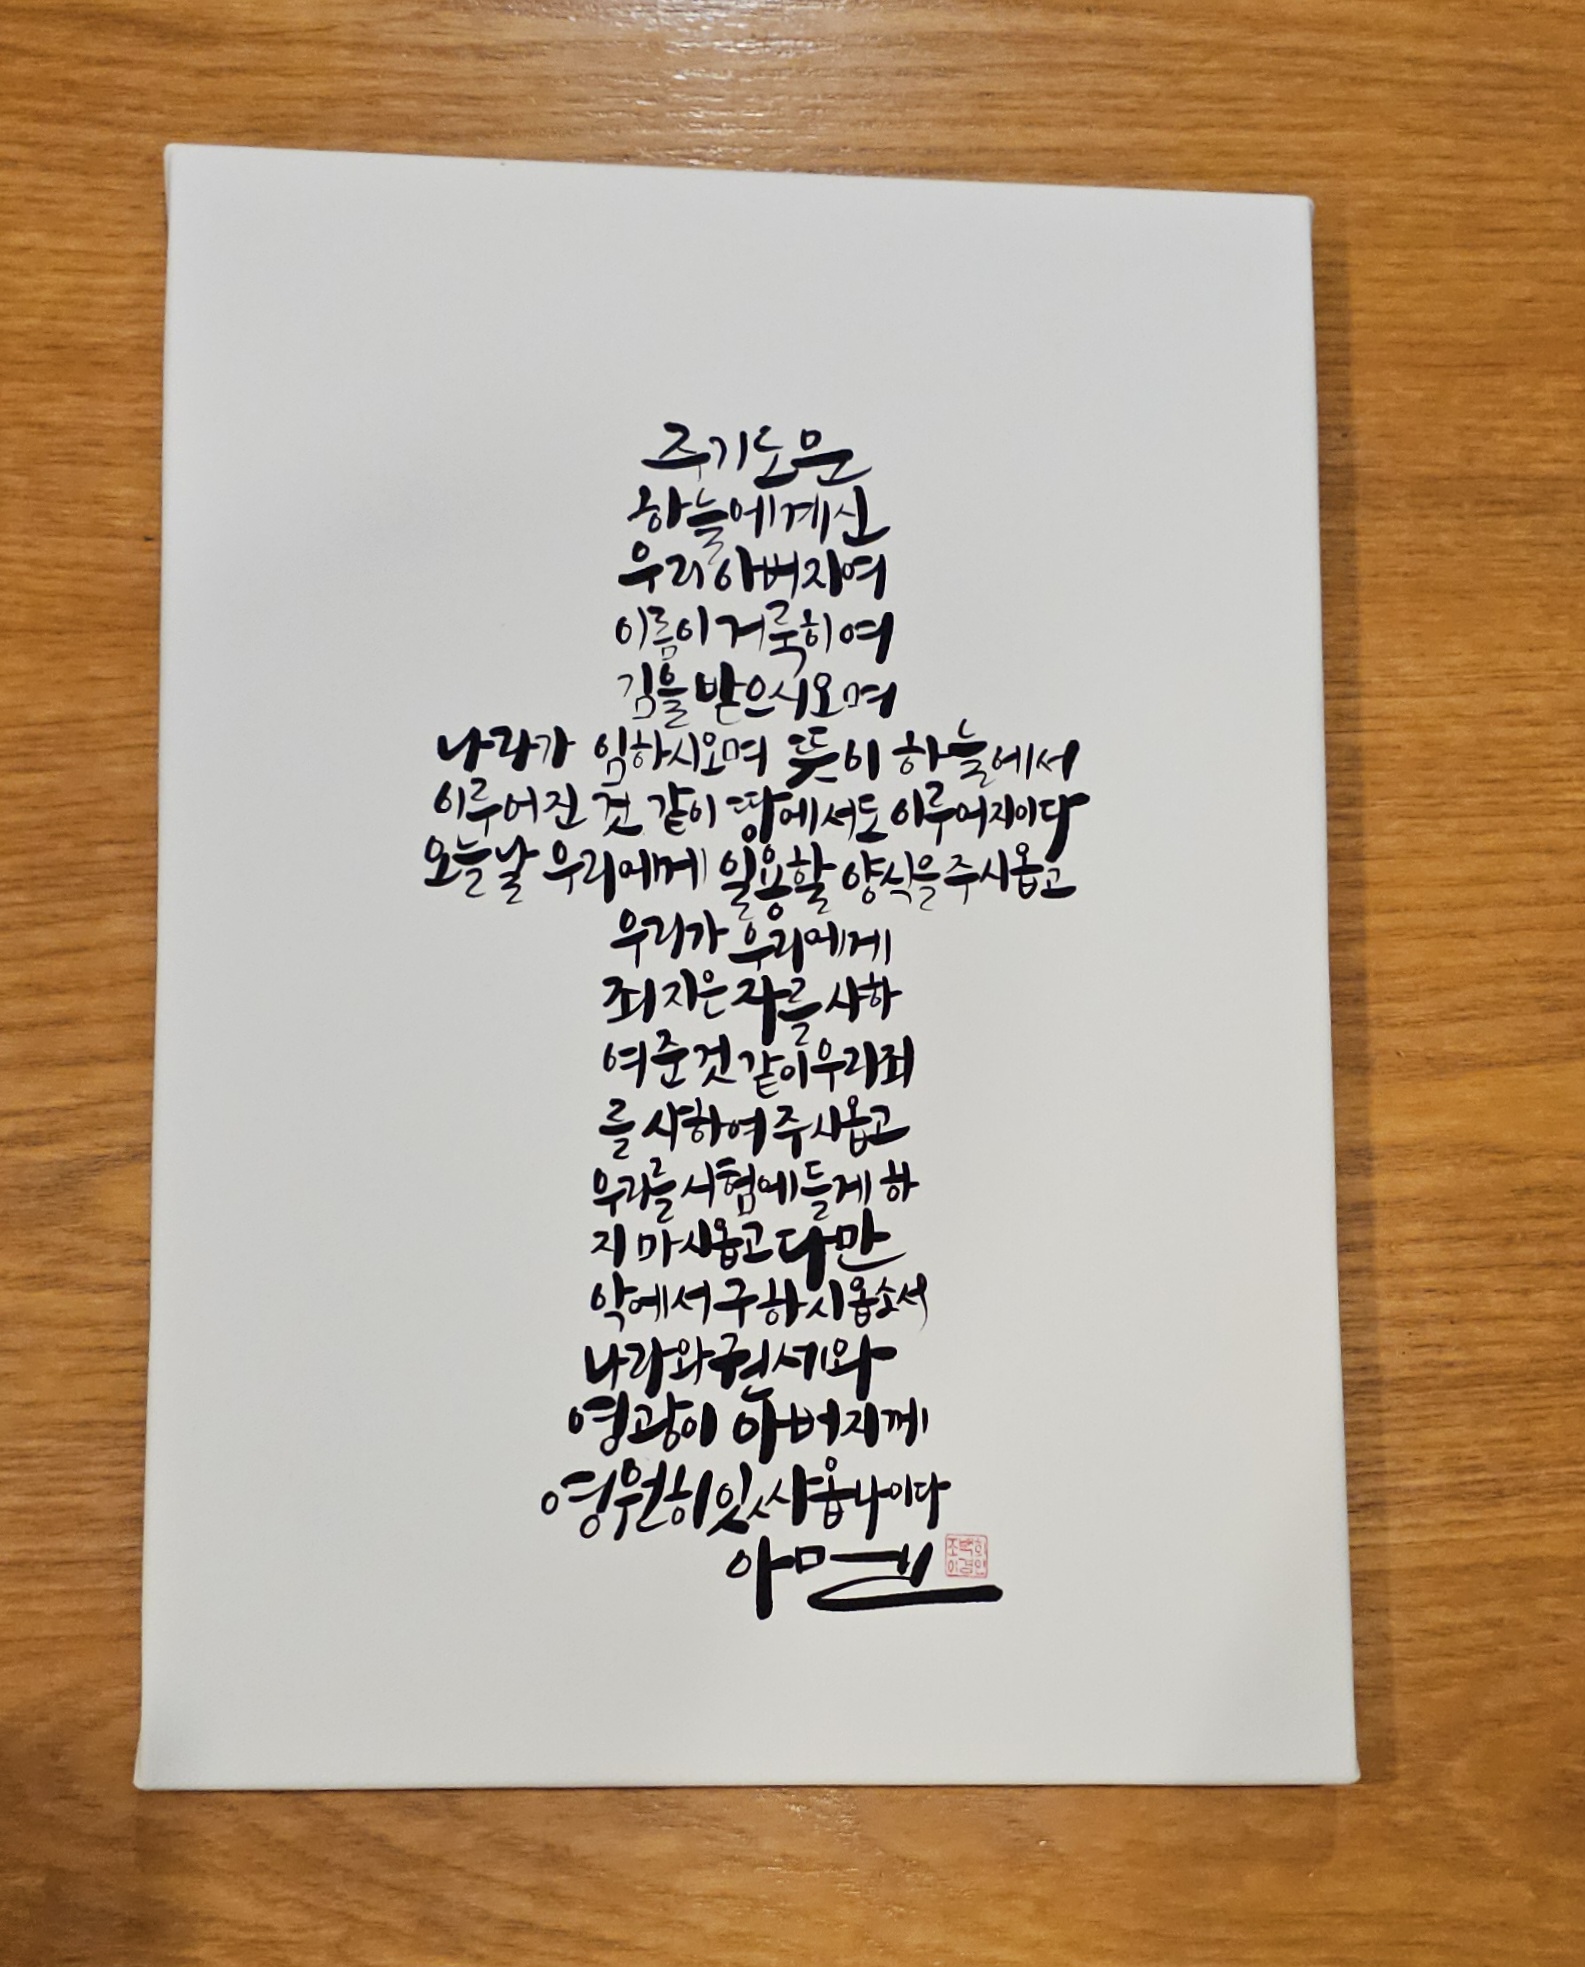 주기도문
하늘에계신
우리아버지여
이름이거룩히여
김을받으시오며
나라가 임하시오며 뜻이 하늘에서
이루어진 것 같이 땅에서도 이루어지이다
오늘날 우리에게 일용할 양식을주시옵고
우리가 우리에게
죄지은자를사하
여준것같이우리죄
를사하여주시옵고
우리를시험에들게하
지마시옵고다만
악에서구하시옵소서
나라와권세와
영광이 아버지께
영원히있사옵나이다
아멘
조백희
이경인